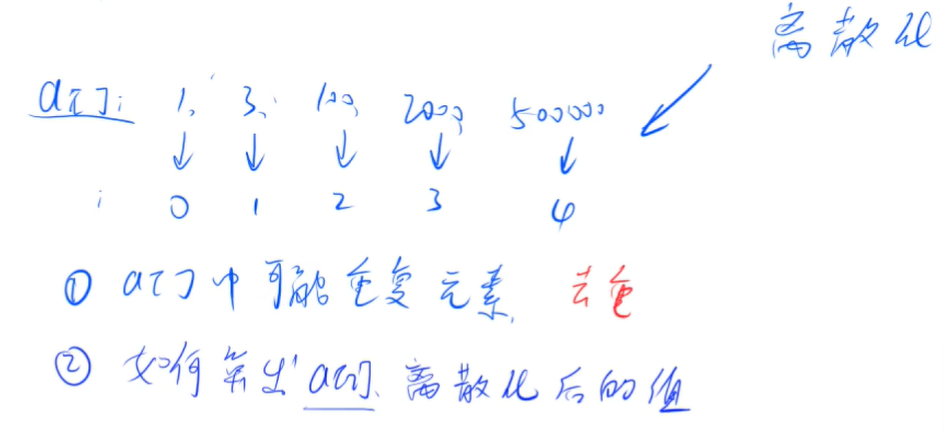 离散化
a[]: 1, 3, 100, 2000, 500000
↓ ↓ ↓ ↓ ↓
i 0 1 2 3 4
① a[]中可能重复元素 去重
② 如何算出a[i]离散化后的值